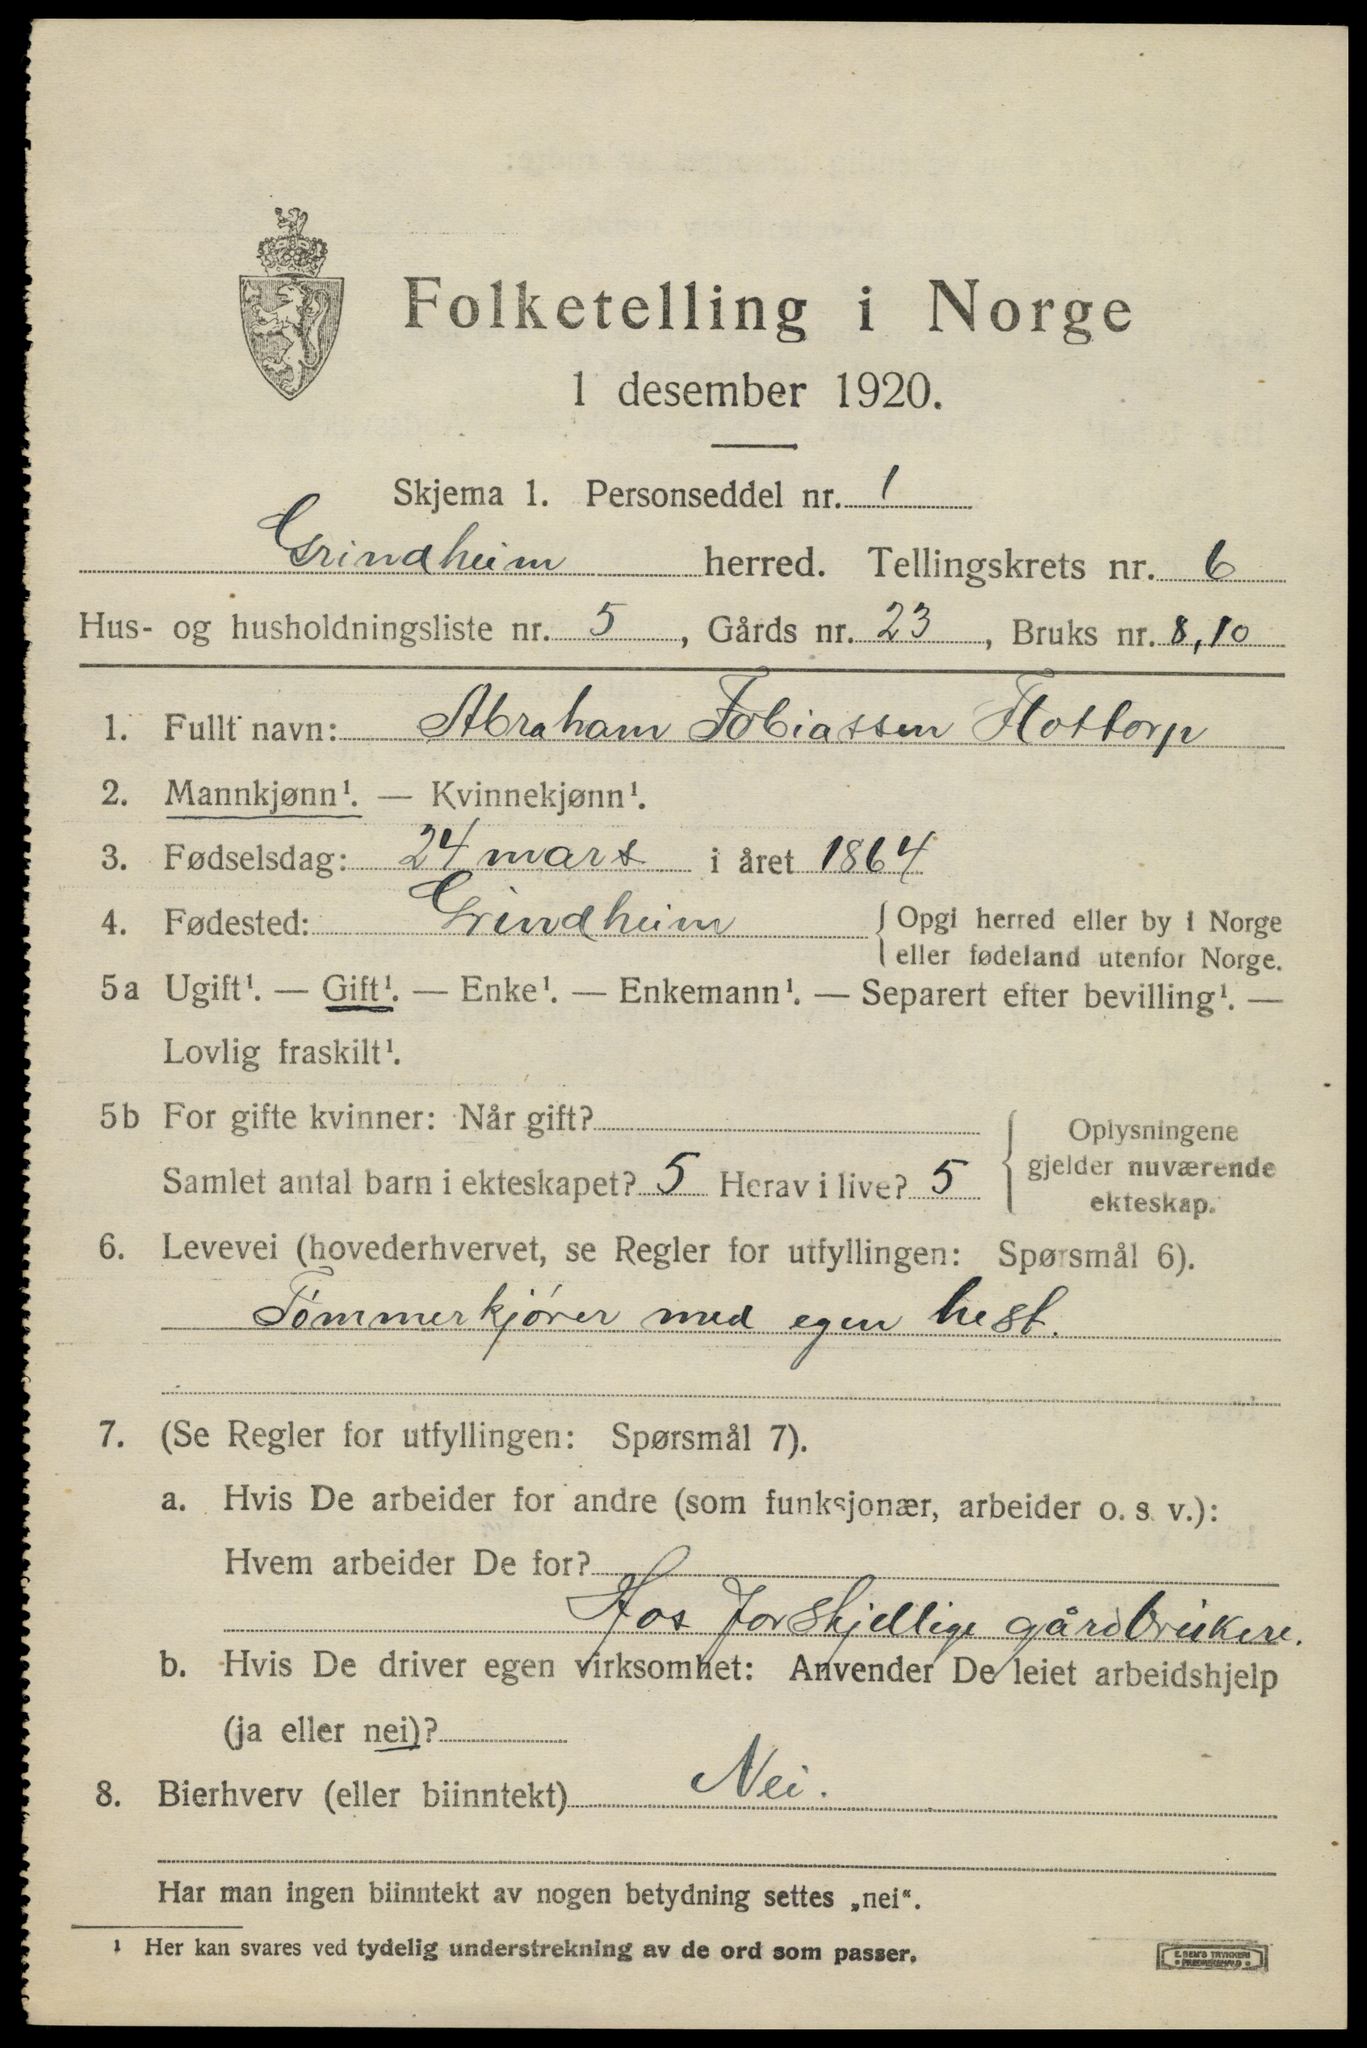 Folketelling i Norge
1 desember 1920.
Skjema 1. Personseddel nr. 1
Grindheim herred. Tellingskrets nr. 6
Hus- og husholdningsliste nr. 5, Gårds nr. 23, Bruks nr. 8,10
1. Fullt navn: Abraham Tobiassen Flottorp
2. Mannkjønn¹. — Kvinnekjønn¹.
3. Fødselsdag: 24 mars i året 1864
4. Fødested: Grindheim { Opgi herred eller by i Norge
eller fødeland utenfor Norge.
5a Ugift¹. — Gift¹. — Enke¹. — Enkemann¹. — Separert efter bevilling¹. —
Lovlig fraskilt¹.
5b For gifte kvinner: Når gift?
Samlet antal barn i ekteskapet? 5 Herav i live? 5
Oplysningene
gjelder nuværende
ekteskap.
6. Levevei (hovederhvervet, se Regler for utfyllingen: Spørsmål 6).
Tømmerkjører med egen hest.
7. (Se Regler for utfyllingen: Spørsmål 7).
a. Hvis De arbeider for andre (som funksjonær, arbeider o. s. v.):
Hvem arbeider De for?
Hos forskjellige gårdbrukere.
b. Hvis De driver egen virksomhet: Anvender De leiet arbeidshjelp
(ja eller nei)?
8. Bierhverv (eller biinntekt) Nei.
Har man ingen biinntekt av nogen betydning settes „nei“.
¹ Her kan svares ved tydelig understrekning av de ord som passer.
E. SEM'S TRYKKERI
• FREDRIKSHALD •